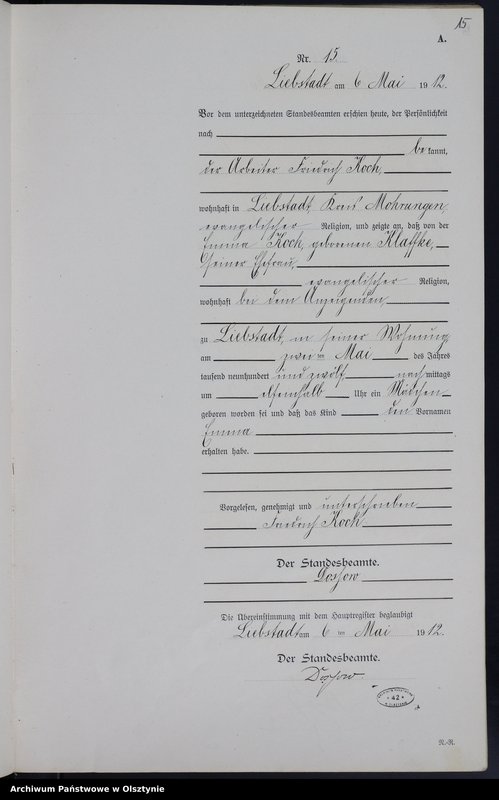 15
A.
Nr. 15.
Liebstadt am 6 Mai 1912.
Vor dem unterzeichneten Standesbeamten erschien heute, der Persönlichkeit
nach
be kannt,
der Arbeiter Friedrich Koch,
wohnhaft in Liebstadt, Kreis Mohrungen,
evangelischer Religion, und zeigte an, daß von der
Emma Koch, geborenen Klaffke,
seiner Ehefrau,
evangelischer Religion,
wohnhaft bei dem Anzeigenden,
zu Liebstadt, in seiner Wohnung
am zwei ten Mai des Jahres
tausend neunhundert und zwölf, nach mittags
um Uhr ein Mädchen
geboren worden sei und daß das Kind den Vornamen
Emma
erhalten habe.
Vorgelesen, genehmigt und unterschrieben
Friedrich Koch
Der Standesbeamte.
Die Übereinstimmung mit dem Hauptregister beglaubigt
Liebstadt am 6 ten Mai 1912.
Der Standesbeamte.
42
R.-R.
Archiwum Państwowe w Olsztynie